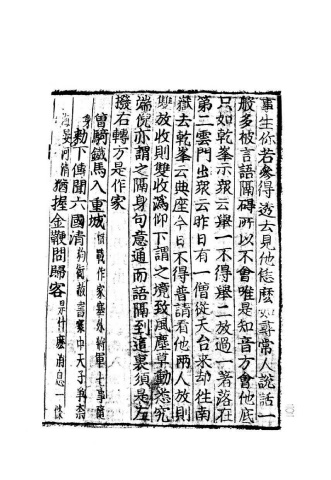 事生你若參得透去見他恁麽如尋常人說話一
般多被言語隔礙所以不會唯是知音方會他底
只如乾峯示衆云舉一不得舉二放過一著落在
第二雲門出衆云昨日有一僧從天台來却往南
嶽去乾峯云典座今日不得普請看他兩人放則
雙放收則雙收為仰下謂之境致風塵草動悉究
端倪亦謂之隔身句意通而語隔到這裏須是左
撥右轉方是作家
曾騎鐵馬入重城慣戰作家塞外將軍七事隨
身勑下傳聞六國清狗銜赦書寰中天子爭柰
海晏河清猶握金鞭問歸客是什麽消息一條